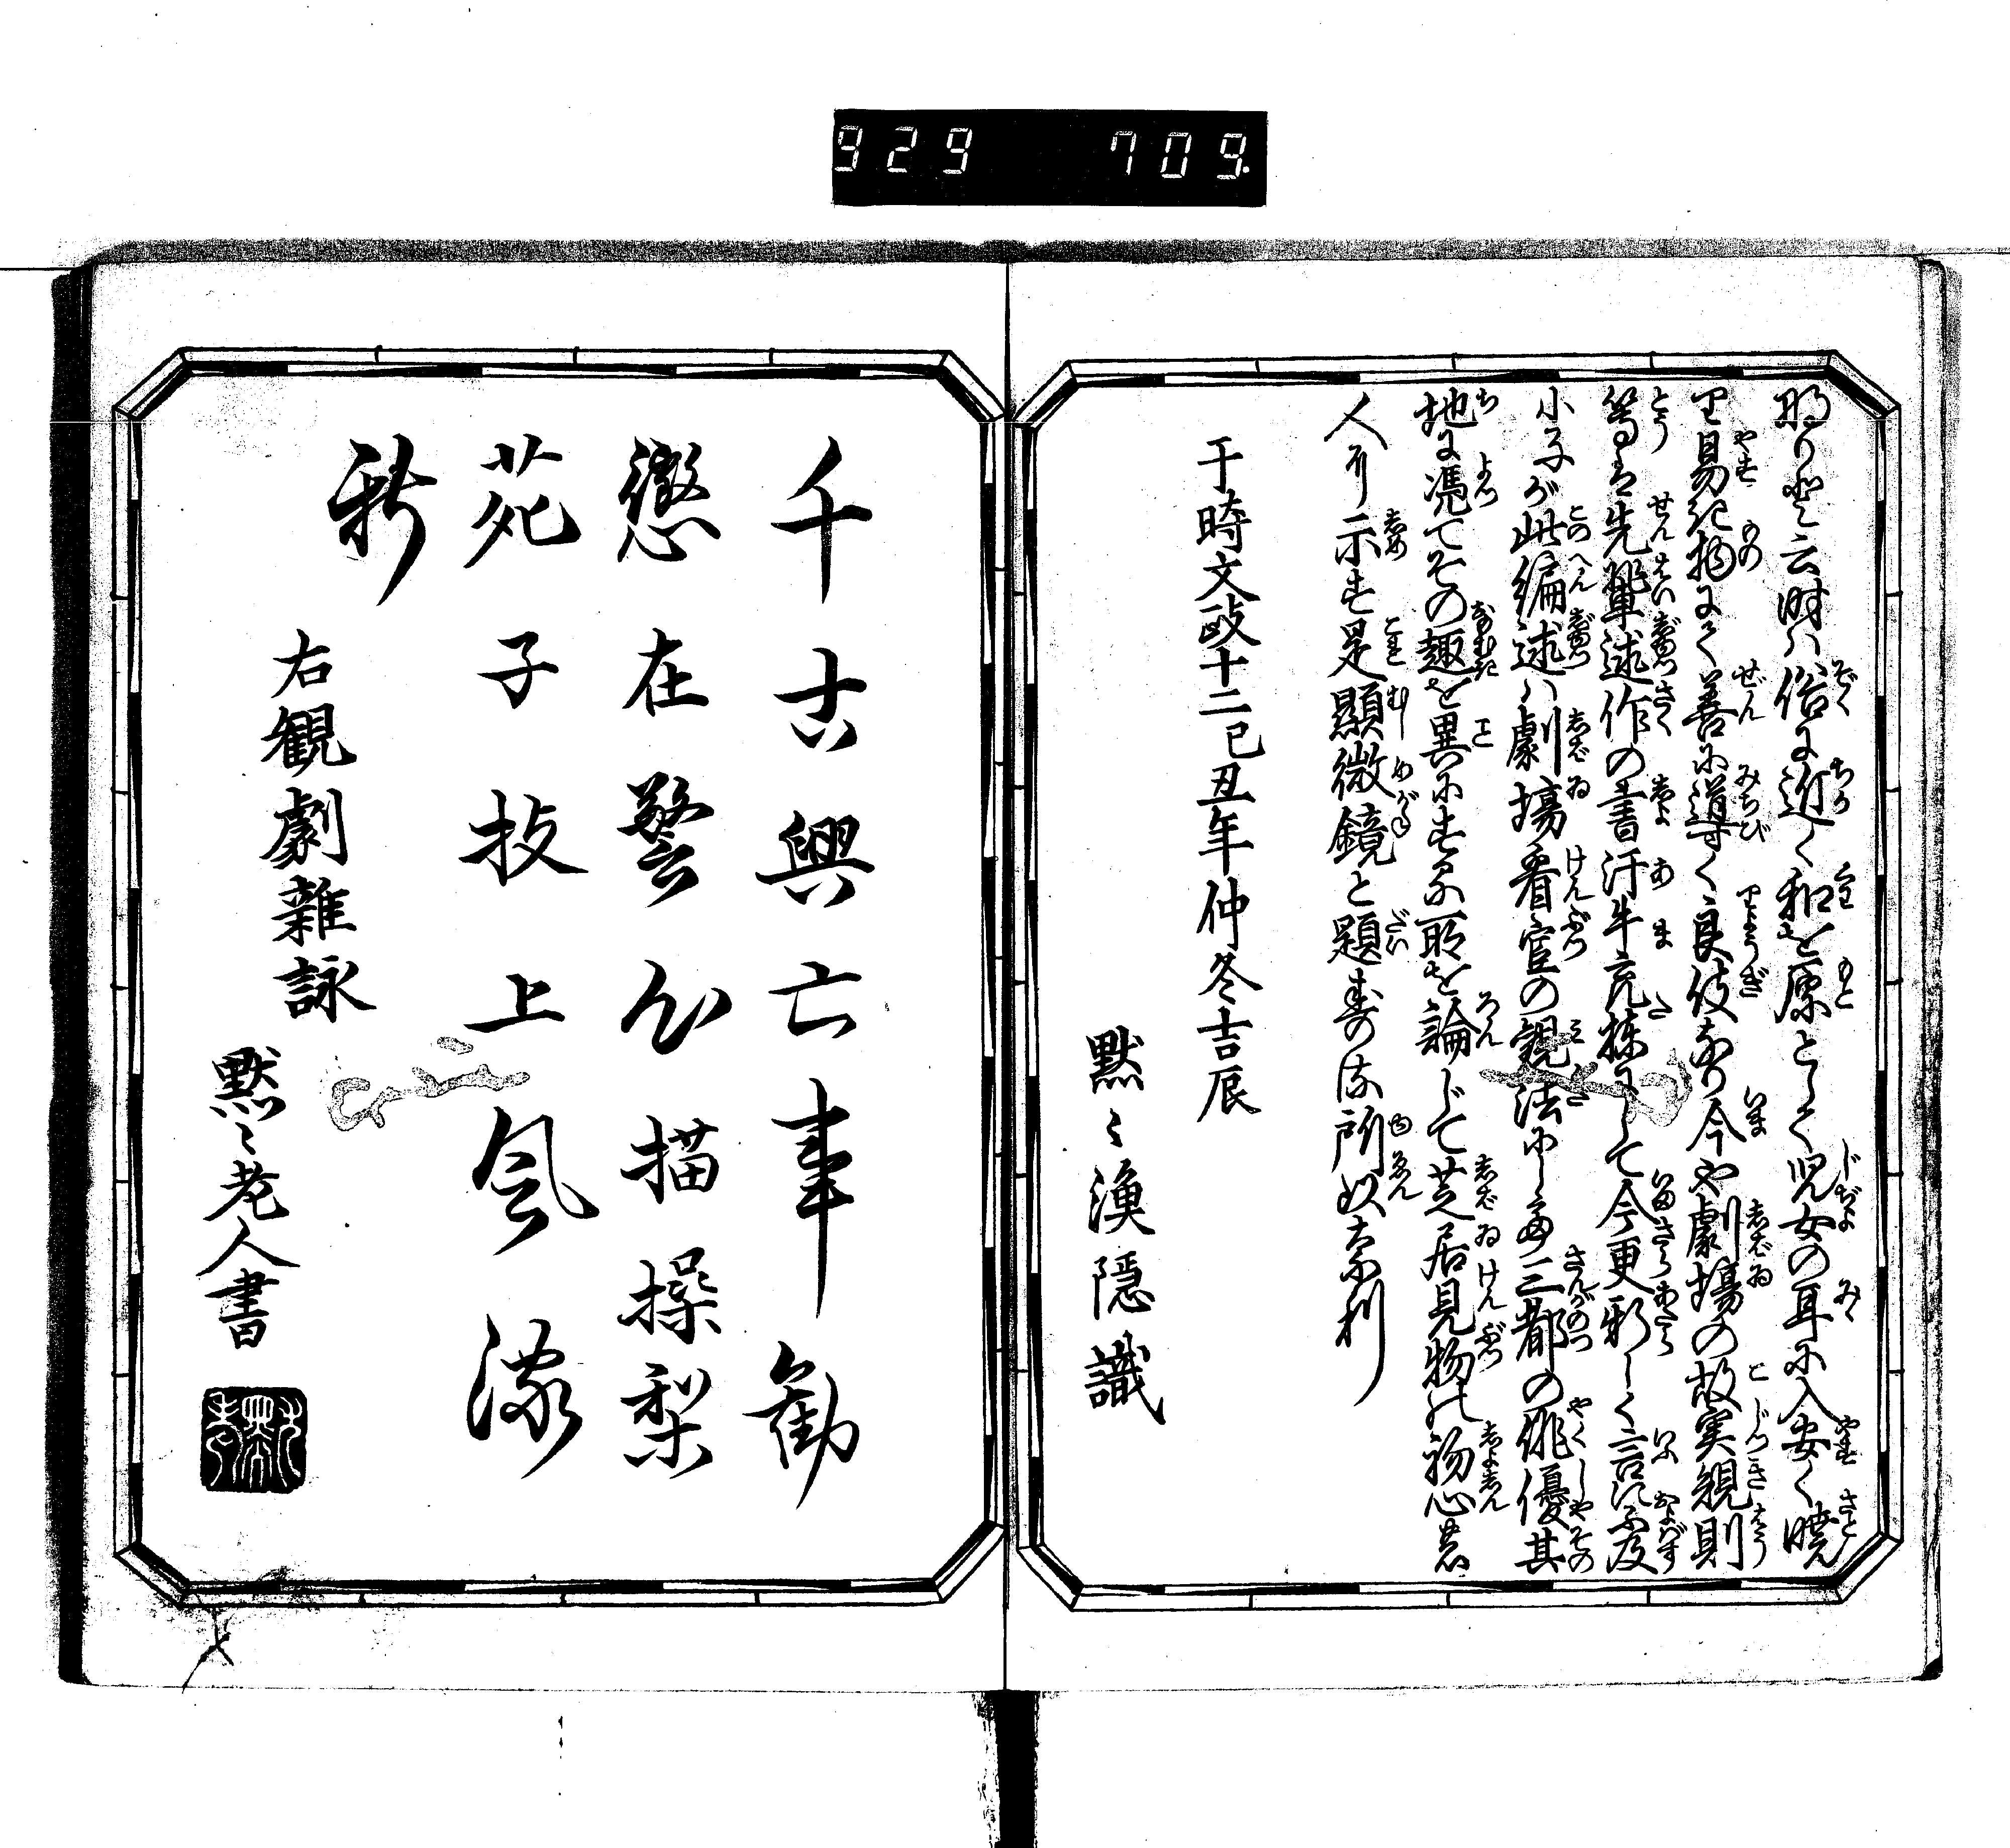 929 709
明りと云時ハ俗に近く和を原として児女の耳に入安く暁
り易き物にて善に導く良伎なり今や劇場の故実観則
等は先輩述作の書汗牛充棟にして今更新しく言に不及
小子が此編述ハ劇場看官の観法にして三都の俳優其
地に憑てその趣を異にする所を論じて芝居見物の初心
人に示す是顕微鏡と題する所以
于時文政十二己丑年仲冬吉辰
黙々漁隠識
千古興亡事勧
懲在警心描操梨
苑子技上気濃
新
右観劇雑詠
黙々老人書